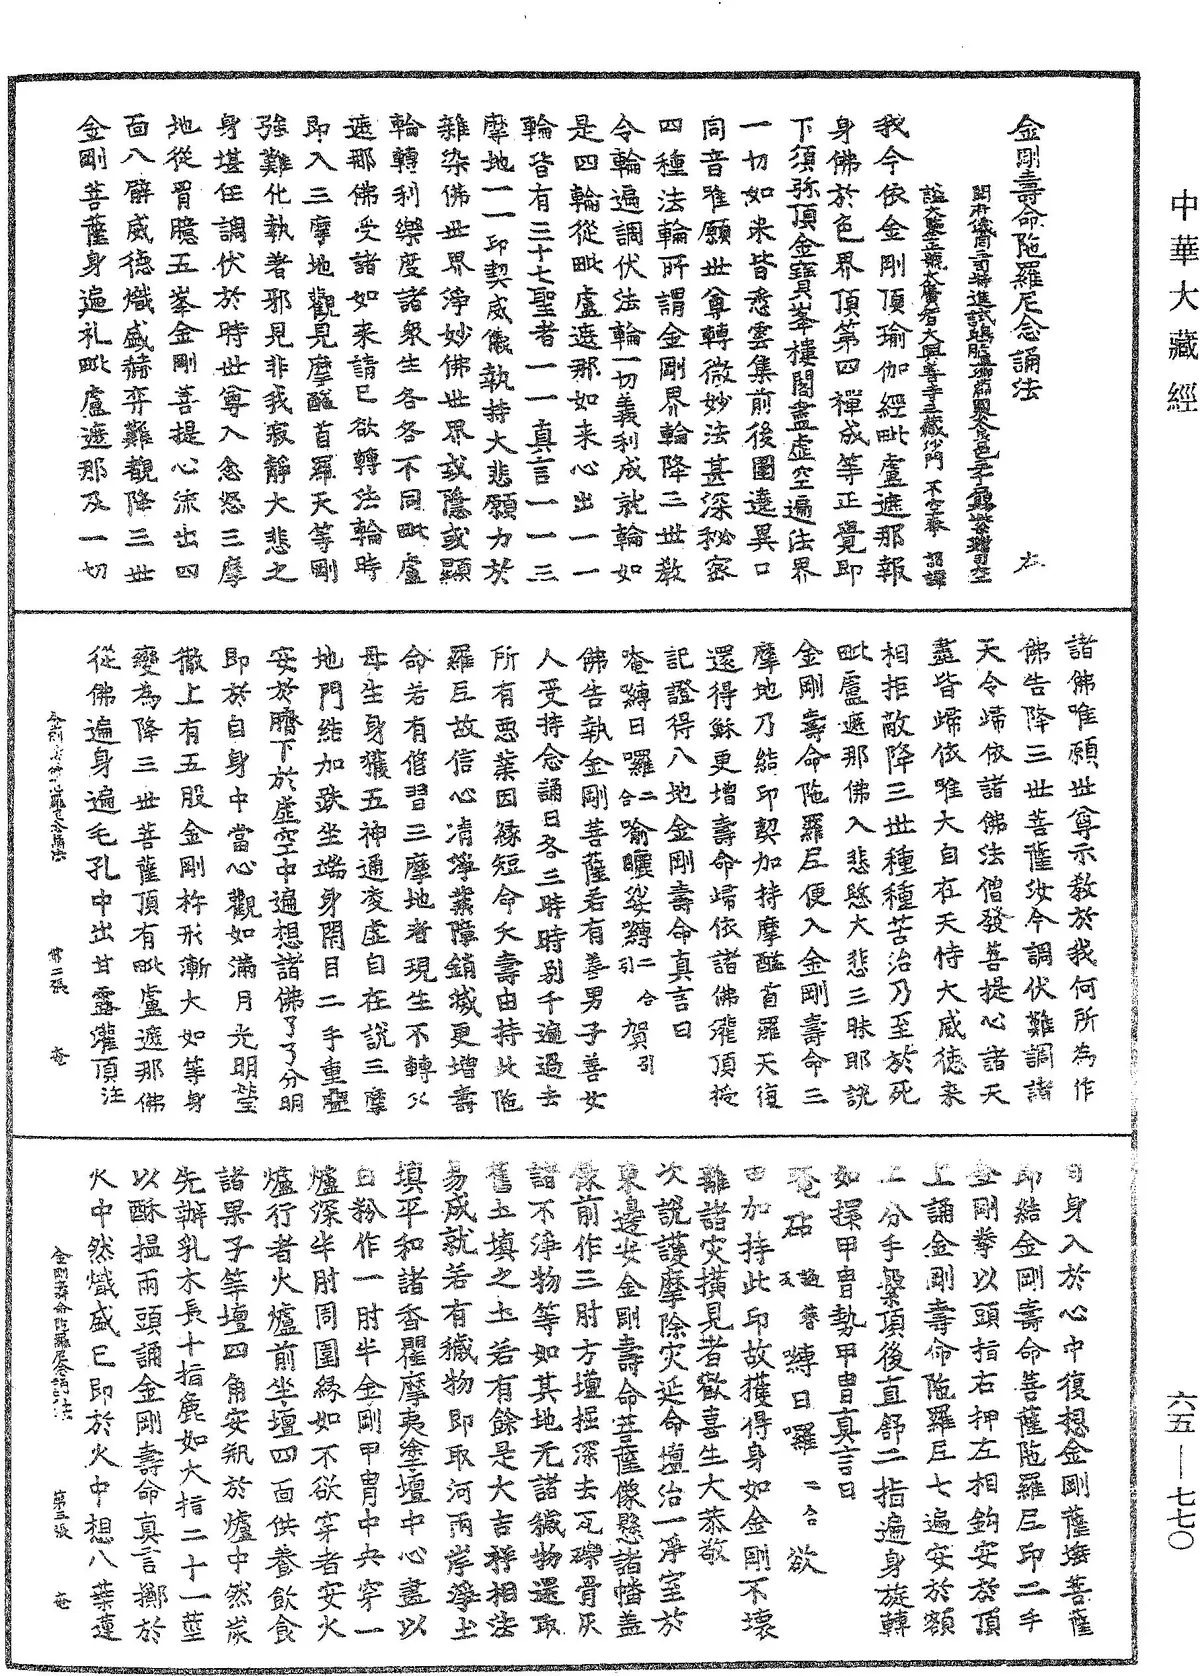 中華大藏經
金剛壽命陁羅尼念誦法
開府儀同三司特進試鴻臚卿肅國公食邑三千戶賜紫贈司空
謚大鑒正號大廣智大興善寺三藏沙門不空奉 詔譯
我今依金剛頂瑜伽經毗盧遮那報
身佛於色界頂第四禪成等正覺即
下須弥頂金寶峯樓閣盡虛空遍法界
一切如来皆悉雲集前後圍遶異口
同音唯願世尊轉微妙法甚深秘密
四種法輪所謂金剛界輪降三世教
令輪遍調伏法輪一切義利成就輪如
是四輪從毗盧遮那如来心出一一
輪皆有三十七聖者一一真言一一三
摩地一一印契威儀執持大悲願力於
雜染佛世界淨妙佛世界或隱或顯
輪轉利樂度諸衆生各各不同毗盧
遮那佛受諸如来請已欲轉法輪時
即入三摩地觀見摩醯首羅天等剛
強難化執著邪見非我寂靜大悲之
身堪任調伏於時世尊入忿怒三摩
地從胷臆五峯金剛菩提心流出四
面八臂威德熾盛赫弈難觀降三世
金剛菩薩身遍礼毗盧遮那及一切
諸佛唯願世尊示教於我何所為作
佛告降三世菩薩汝今調伏難調諸
天令歸依諸佛法僧發菩提心諸天
盡皆歸依唯大自在天恃大威德来
相拒敵降三世種種苦治乃至於死
毗盧遮那佛入悲愍大悲三昧耶說
金剛壽命陁羅尼便入金剛壽命三
摩地乃結印契加持摩醯首羅天復
還得穌更增壽命歸依諸佛灌頂授
記證得八地金剛壽命真言曰
唵嚩日囉二合喻曬娑嚩二合引賀引
佛告執金剛菩薩若有善男子善女
人受持念誦日各三時時別千遍過去
所有惡業因緣短命夭壽由持此陁
羅尼故信心清淨業障銷滅更增壽
命若有脩習三摩地者現生不轉父
母生身獲五神通凌虛自在說三摩
地門結加趺坐端身閉目二手重疊
安於臍下於虛空中遍想諸佛了了分明
即於自身中當心觀如滿月光明瑩
徹上有五股金剛杵形漸大如等身
變為降三世菩薩頂有毗盧遮那佛
從佛遍身遍毛孔中出甘露灌頂注
第二張
自身入於心中復想金剛薩埵菩薩
即結金剛壽命菩薩陁羅尼印二手
金剛拳以頭指右押左相鈎安於頂
上誦金剛壽命陁羅尼七遍安於額
上分手繫頂後直舒二指遍身旋轉
如擐甲胄勢甲胄真言曰
唵砧嚩日囉二合欲
由加持此印故獲得身如金剛不壞
離諸灾橫見者歡喜生大恭敬
次說護摩除灾延命壇治一淨室於
東邊安金剛壽命菩薩像懸諸幡蓋
像前作三肘方壇掘深去瓦礫骨灰
諸不淨物等如其地无諸穢物還取
舊土填之土若有餘是大吉祥相法
易成就若有穢物即取河兩岸淨土
填平和諸香瞿摩夷塗壇中心畫以
白粉作一肘半金剛甲胄中央穿一
爐深半肘周圍緣如不欲穿者安火
爐行者火爐前坐壇四面供養飲食
諸果子等壇四角安瓶於爐中然炭
先辦乳木長十指麁如大指二十一莖
以酥揾兩頭誦金剛壽命真言擲於
火中然熾盛已即於火中想八葉蓮
金剛壽命陁羅尼念誦法 第三張
六五—七七〇